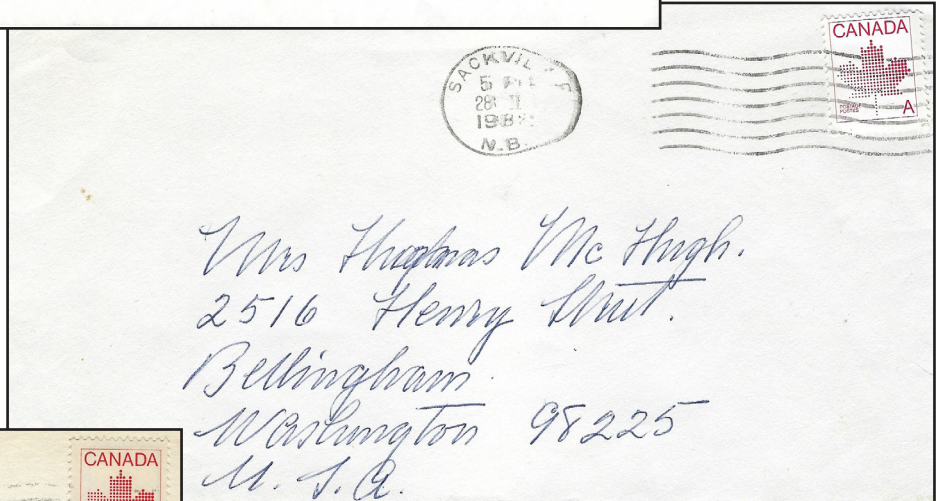 CANADA
POSTAGE
POSTES
A
SACKVIL
5 PM
28 II
198
N.B.
Mrs Thomas Mc Hugh.
2516 Henry Street.
Bellingham.
Washington 98225
U. S. A.
CANADA